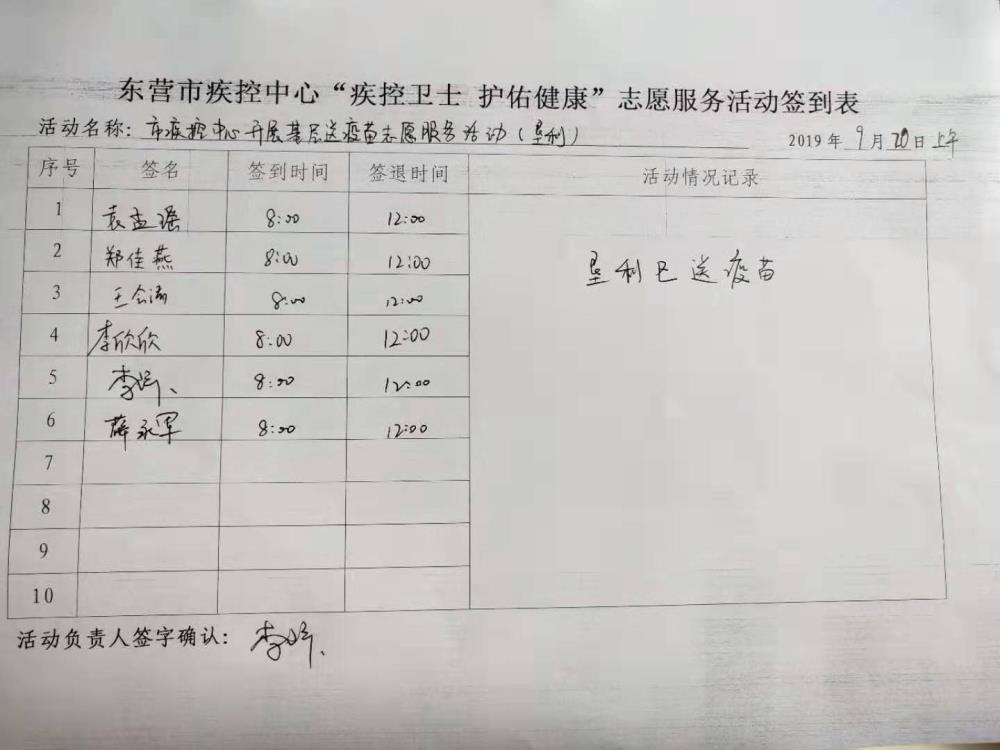 东营市疾控中心“疾控卫士 护佑健康”志愿服务活动签到表
活动名称：市疾控中心开展基层送疫苗志愿服务活动（垦利） 2019年9月20日上午
序号 签名 签到时间 签退时间 活动情况记录
1 袁孟瑶 8:00 12:00
2 郑佳燕 8:00 12:00
垦利已送疫苗
3 王 8:00 12:00
4 李欣欣 8:00 12:00
5 李 8:00 12:00
6 薛永军 8:00 12:00
7
8
9
10
活动负责人签字确认：李